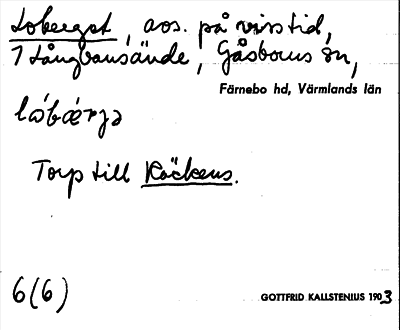 Loberget, avs. på viss tid,
1 Långbansände, Gåsborns sn,
Färnebo hd, Värmlands län
lǝbǽrjǝ
Torp till Räckens.
6(6)
GOTTFRID KALLSTENIUS 1903